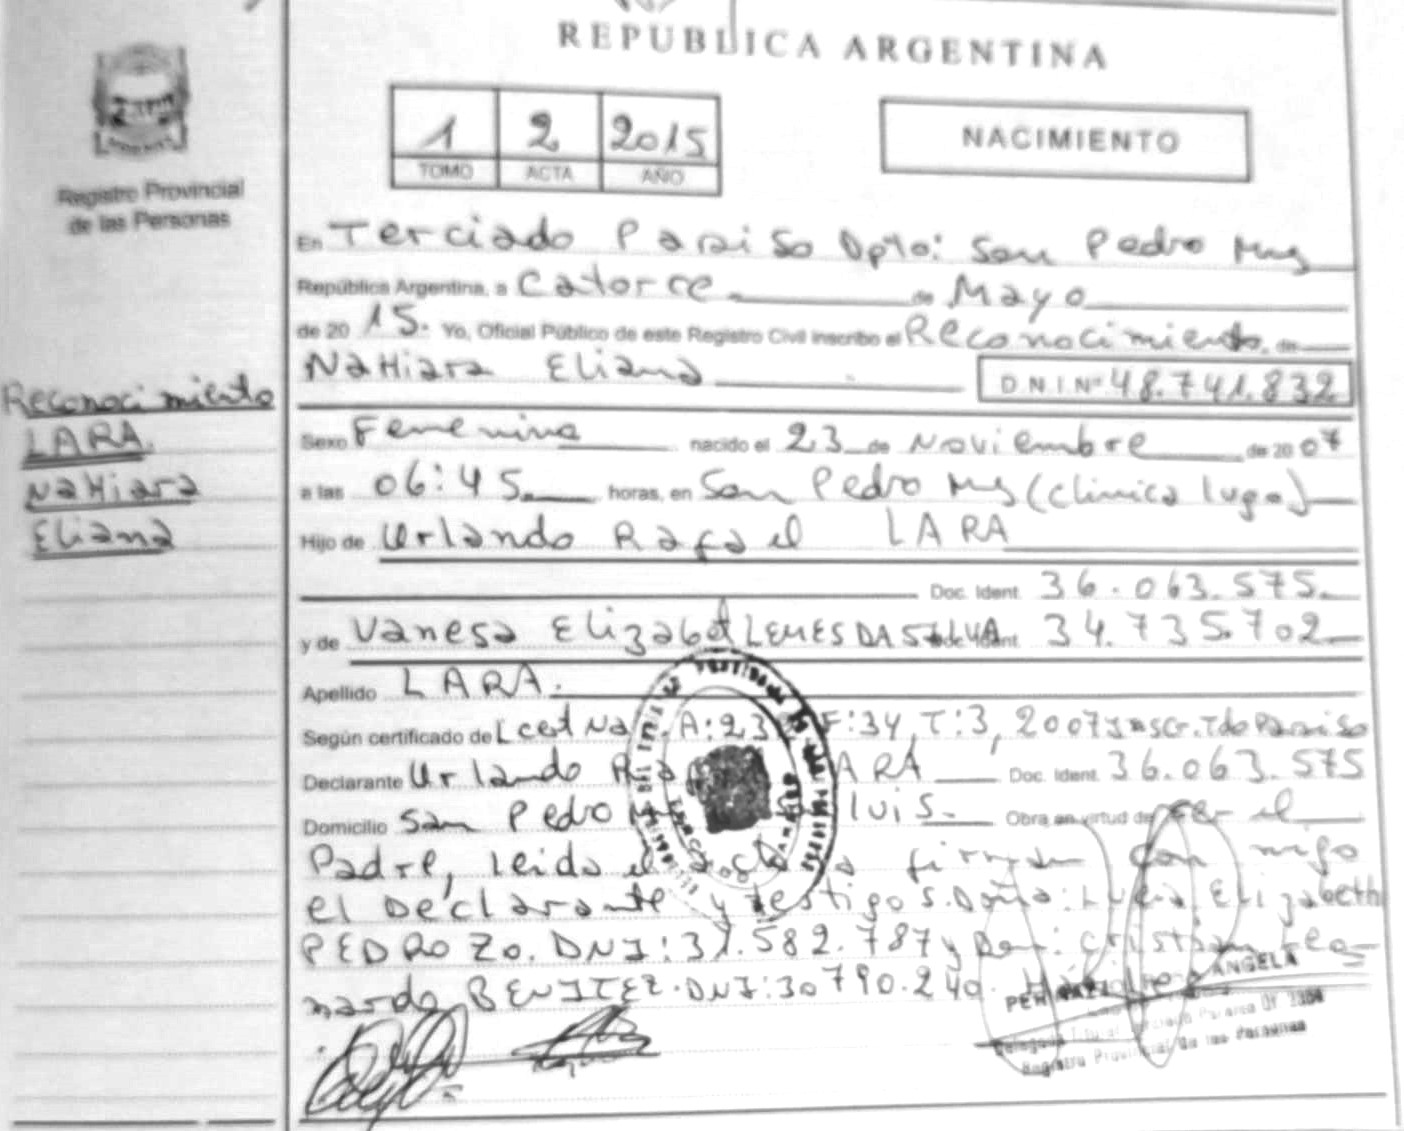 REPUBLICA ARGENTINA
1 2 2015
TOMO ACTA AÑO
NACIMIENTO
Registro Provincial
de las Personas
En Terciado Paraiso Dpto: San Pedro Mns
República Argentina, a Catorce de Mayo
de 20 15. Yo, Oficial Público de este Registro Civil inscribo el Reconocimiento de
NaHiara Eliana D.N.I.Nº 48.741.832
Reconocimiento
LARA.
NaHiara
Eliana
Sexo Femenino nacido el 23 de Noviembre de 2007
a las 06:45 horas, en San Pedro Mns (Clinica lugo)
Hijo de Urlando Rafael LARA
Doc. Ident. 36.063.575
y de Vanesa Elizabet LEMES DA SILVA Ident. 34.735.702
Apellido LARA.
Según certificado de L cert Na A:23 F:34, T:3, 2007 Inscr. Tdo Paraiso
Declarante Urlando LARA Doc. Ident. 36.063.575
Domicilio San Pedro luis. Obra en virtud de ser el
Padre, leida el Acta firman con migo
el Declarante y testigos. Doña: Elizabeth
PEDROZO. DNI: 31.582.787 y Don: Cristian Leo-
nardo BENITEZ. DNI: 30790.240.
ANGELA
Registro Provincial de las Personas